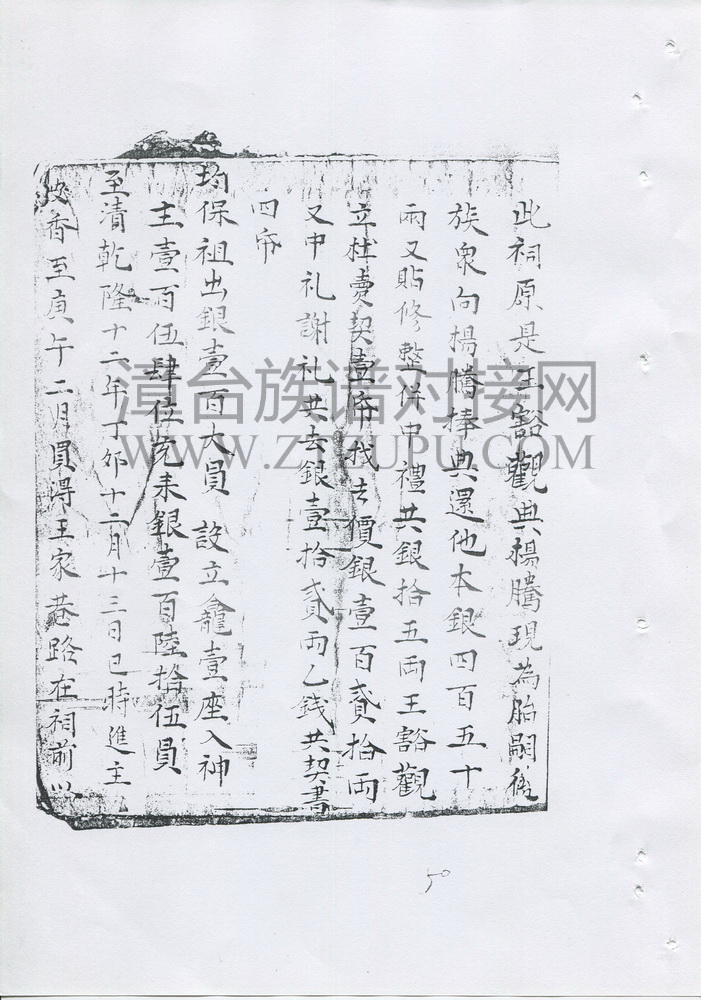 此祠原是王豁觀典楊騰現為胎嗣後
族衆向楊騰捧典還他本銀四百五十
兩又貼修整併中禮共銀拾五両王豁觀
立杜賣契壹帋找去價銀壹百貳拾両
又中礼謝礼共去銀壹拾貳両乙錢共契書
四帋
均保祖出銀壹百大員 設立龕壹座入神
主壹百伍肆位充來銀壹百陸拾伍員
至清乾隆十二年丁卯十二月十三日巳時進主
香至庚午二月買得王家巷路在祠前以
漳台族谱对接网
WWW.ZTZUPU.COM
50